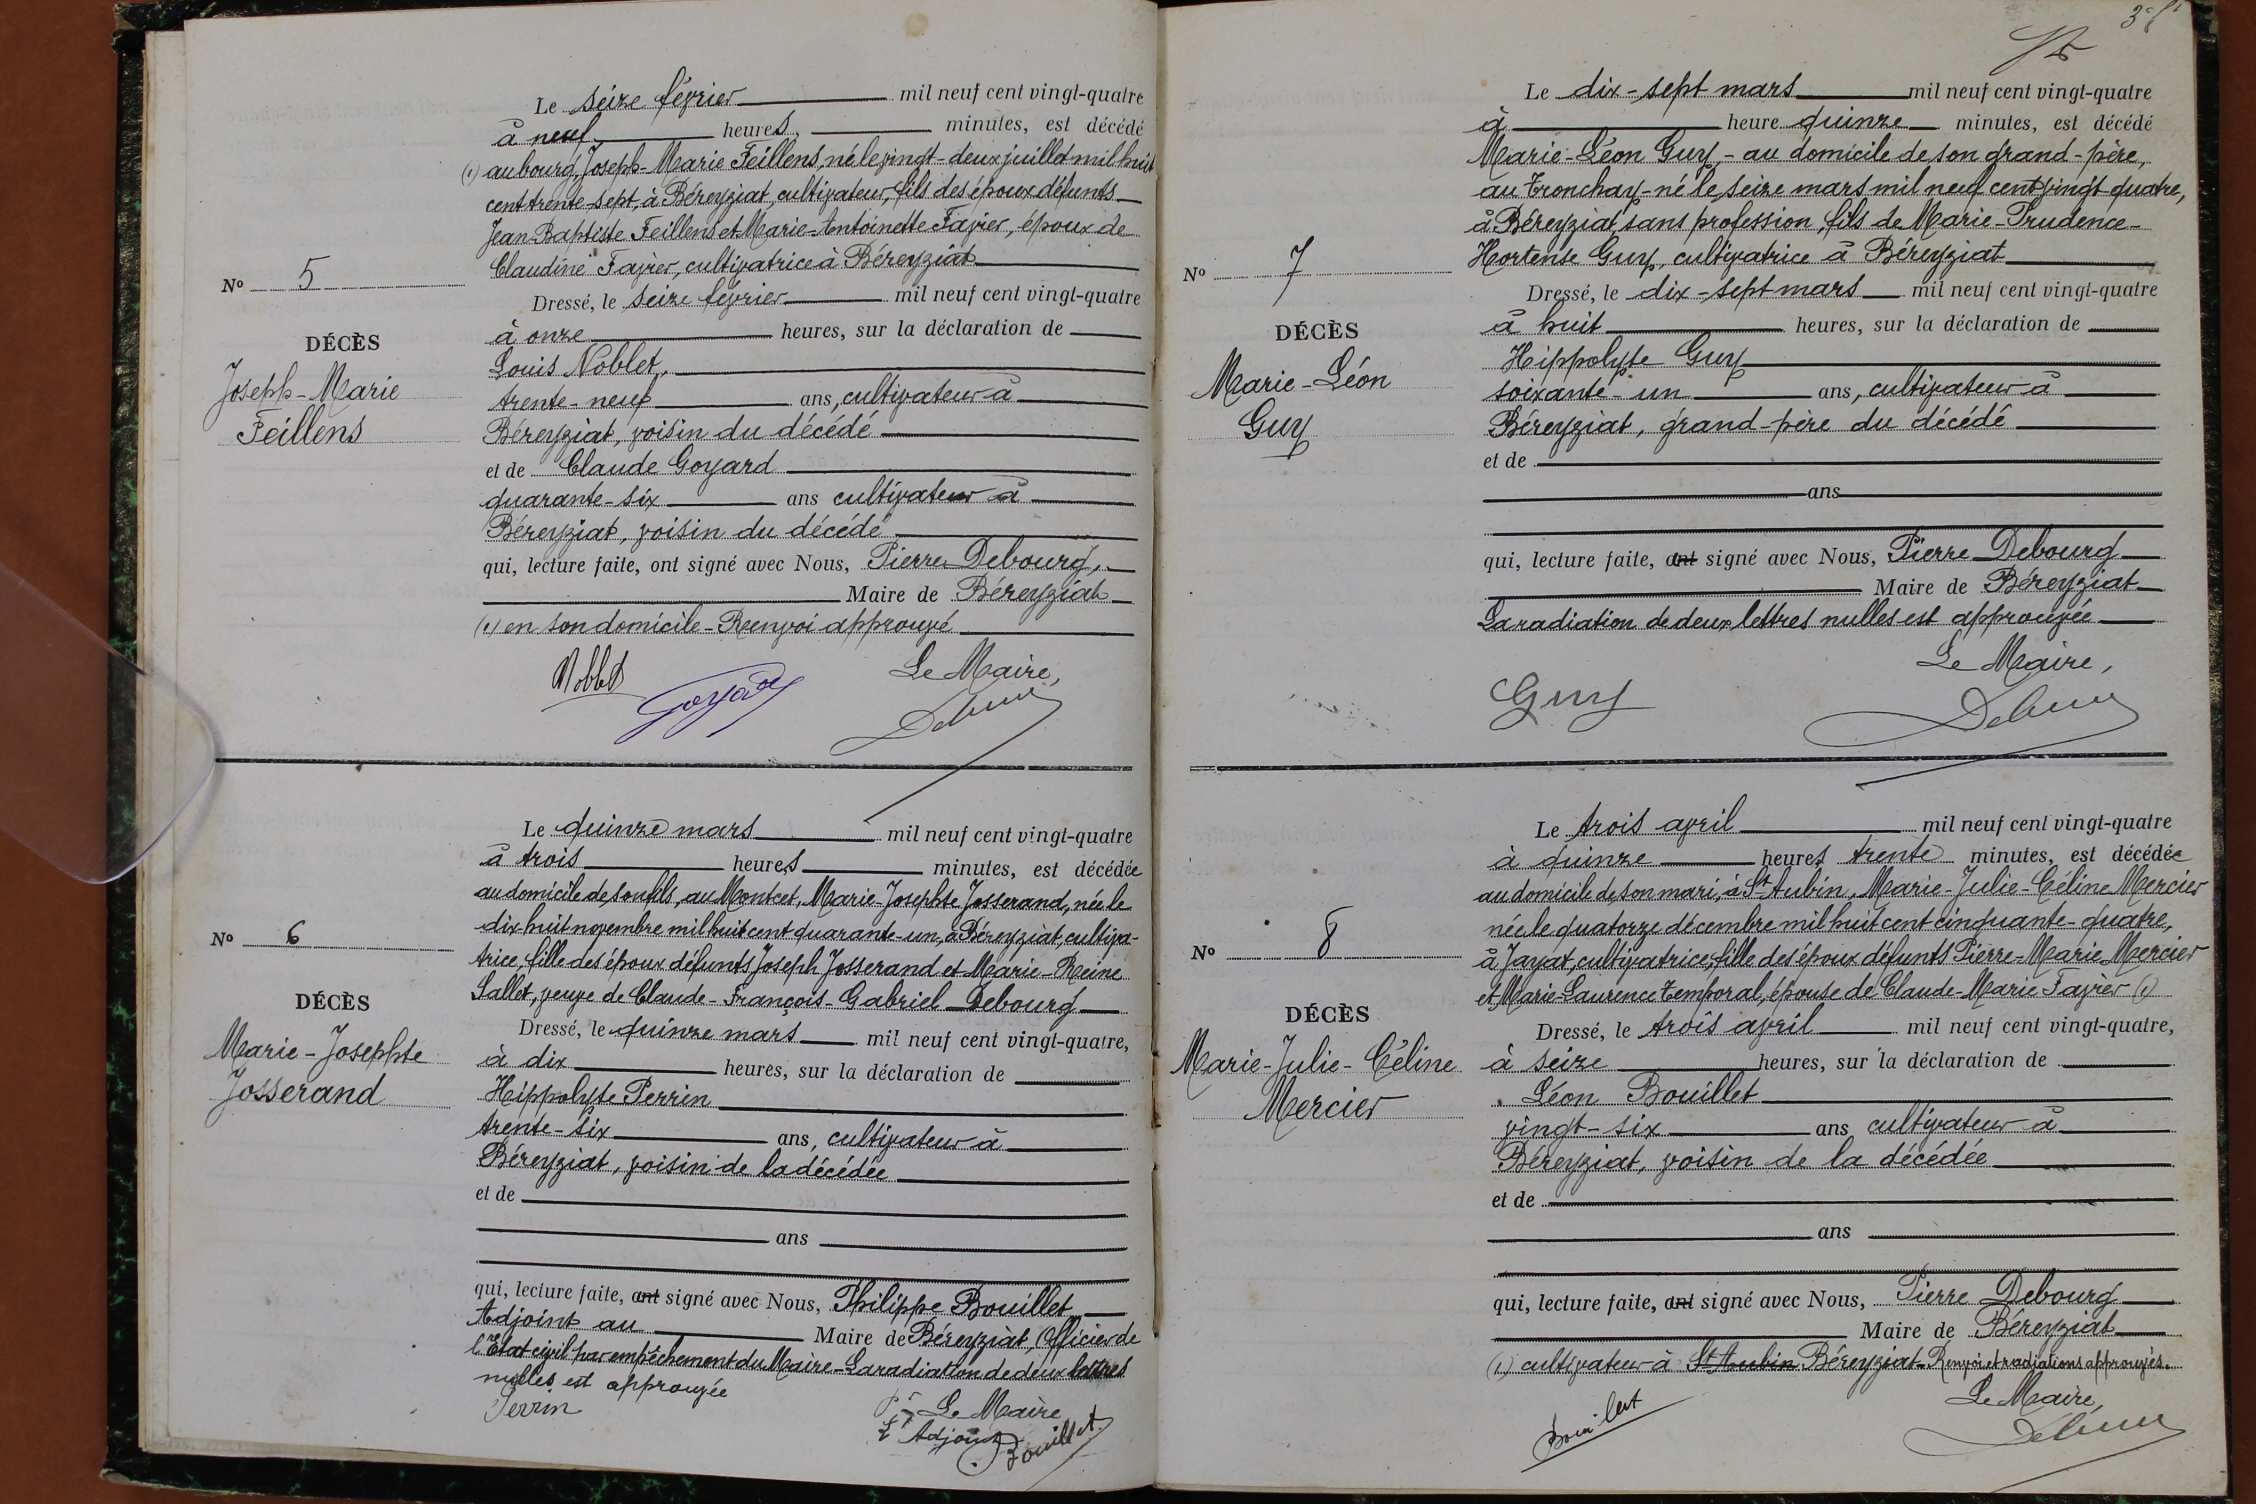 Le seize février mil neuf cent vingt-quatre
à neuf heures, minutes, est décédé
(1) au bourg, Joseph-Marie Feillens, né le vingt-deux juillet mil huit
cent trente-sept, à Béreyziat, cultivateur, fils des époux défunts
Jean-Baptiste Feillens et Marie-Antoinette Favier, époux de
Claudine Favier, cultivatrice à Béreyziat
Nº 5
Dressé, le seize février mil neuf cent vingt-quatre
à onze heures, sur la déclaration de
DÉCÈS
Louis Noblet,
Joseph-Marie
trente-neuf ans, cultivateur à
Feillens
Béreyziat, voisin du décédé
et de Claude Goyard
quarante-six ans cultivateur à
Béreyziat, voisin du décédé
qui, lecture faite, ont signé avec Nous, Pierre Debourg,
Maire de Béreyziat
(1) en son domicile - Renvoi approuvé
Noblet Goyard Le Maire,
Le quinze mars mil neuf cent vingt-quatre
à trois heures minutes, est décédée
au domicile de son fils, au Montcet, Marie-Josephte Josserand, née le
dix huit novembre mil huit cent quarante-un, à Béreyziat, cultiva-
Nº 6
trice, fille des époux défunts Joseph Josserand et Marie-Reine
Sallet, veuve de Claude-François-Gabriel Debourg
DÉCÈS
Dressé, le quinze mars mil neuf cent vingt-quatre,
Marie-Josephte
à dix heures, sur la déclaration de
Josserand
Hippolyte Perrin
trente-six ans, cultivateur à
Béreyziat, voisin de la décédée
et de
ans
qui, lecture faite, ont signé avec Nous, Philippe Bouillet
Adjoint au Maire de Béreyziat, Officier de
l'Etat civil par empêchement du Maire - La radiation de deux lettres
nulles est approuvée
Perrin
Le Maire
Adjoint
Bouillet
Le dix-sept mars mil neuf cent vingt-quatre
à heure quinze minutes, est décédé
Marie-Léon Guy, - au domicile de son grand-père,
au Tronchay - né le seize mars mil neuf cent vingt quatre,
à Béreyziat, sans profession, fils de Marie-Prudence-
Hortense Guy, cultivatrice à Béreyziat
Nº 7
Dressé, le dix-sept mars mil neuf cent vingt-quatre
à huit heures, sur la déclaration de
DÉCÈS
Hippolyte Guy
Marie-Léon
soixante-un ans, cultivateur à
Guy
Béreyziat, grand-père du décédé
et de
ans
qui, lecture faite, ont signé avec Nous, Pierre Debourg
Maire de Béreyziat
La radiation de deux lettres nulles est approuvée
Le Maire,
Guy
Le trois avril mil neuf cent vingt-quatre
à quinze heures trente minutes, est décédée
au domicile de son mari, à St Aubin, Marie-Julie-Céline Mercier
née le quatorze décembre mil huit cent cinquante-quatre,
Nº 8
à Jayat, cultivatrice, fille des époux défunts Pierre-Marie Mercier
et Marie-Laurence Temporal, épouse de Claude-Marie Favier (1)
DÉCÈS
Dressé, le trois avril mil neuf cent vingt-quatre,
Marie-Julie-Céline
à seize heures, sur la déclaration de
Mercier
Léon Bouillet
vingt-six ans cultivateur à
Béreyziat, voisin de la décédée
et de
ans
qui, lecture faite, ont signé avec Nous, Pierre Debourg
Maire de Béreyziat
(1) cultivateur à St Aubin Béreyziat - Renvoi et radiations approuvés.
Le Maire,